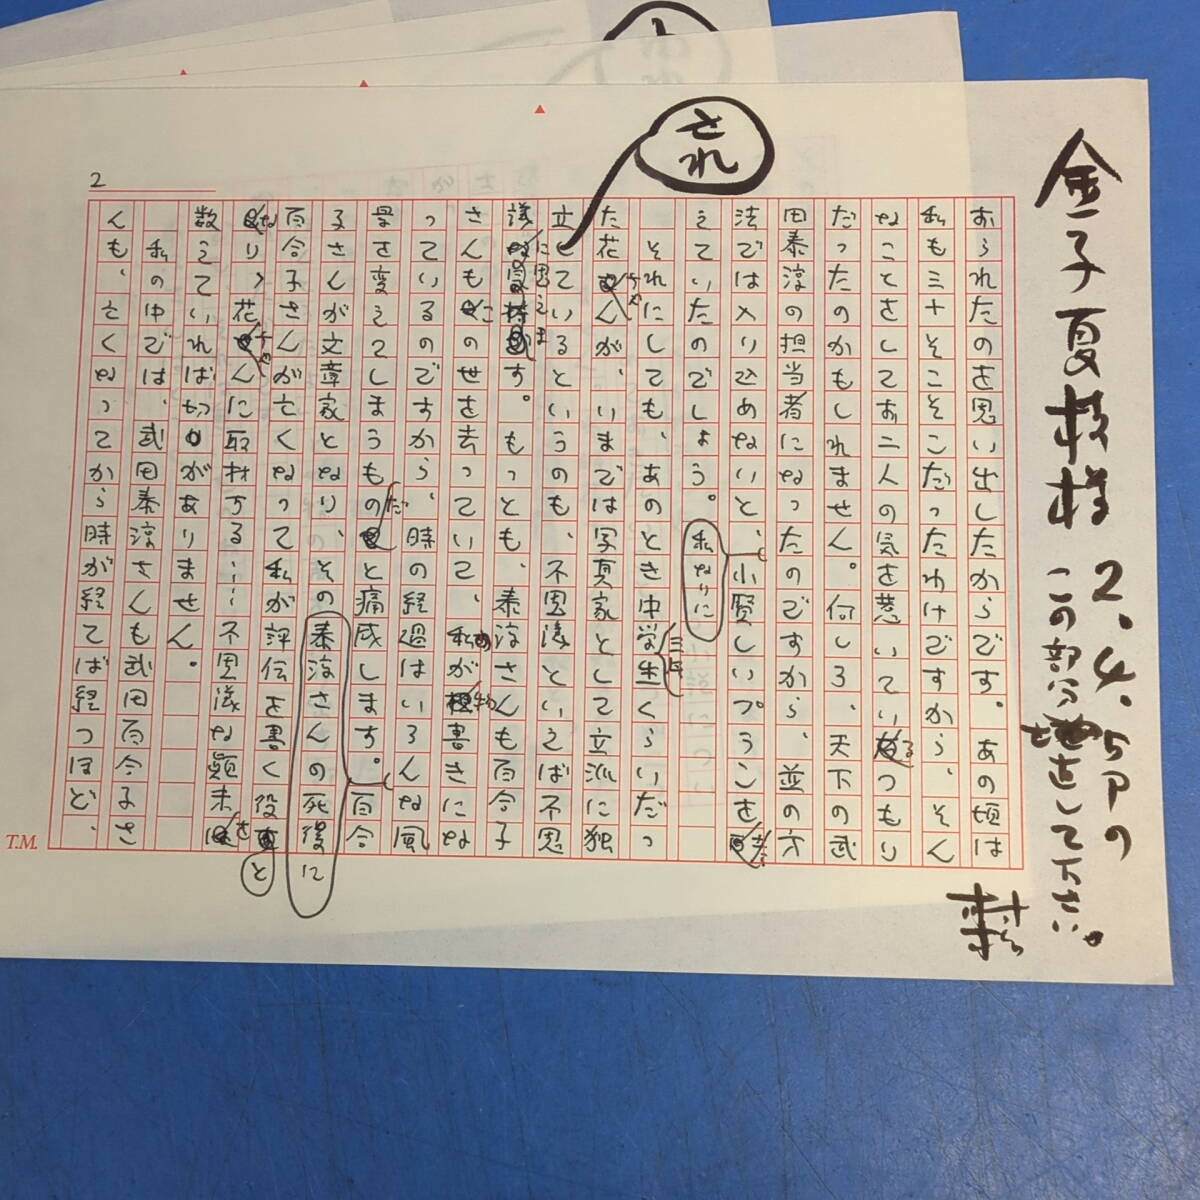 金子夏枝様
2.4.5Pの
この部分
直して下さい。
村松
2
され
おられたのを思い出したからです。あの頃は
私も三十そこそこだったわけですから、そん
なことをしてお二人の気を惹いているつもり
だったのかもしれません。何しろ、天下の武
田泰淳の担当者になったのですから、並の方
法では入り込めないと、小賢しいプランを
私なりに
えていたのでしょう。
それにしても、あのとき中学生くらいだっ
三年
た花ちゃんが、いまでは写真家として立派に独
立しているというのも、不思議といえば不思
議に思えます。もっとも、泰淳さんも百合子
さんもこの世を去っていて、私が物書きにな
っているのですから、時の経過はいろんな風
景を変えてしまうものだと痛感します。百合
子さんが文章家となり、その
泰淳さんの死後に
百合子さんが亡くなって私が評伝を書く役と
なり、花ちゃんに取材する……不思議な顛末を
数えていれば切りがありません。
私の中では、武田泰淳さんも武田百合子さ
んも、亡くなってから時が経てば経つほど、
T.M.